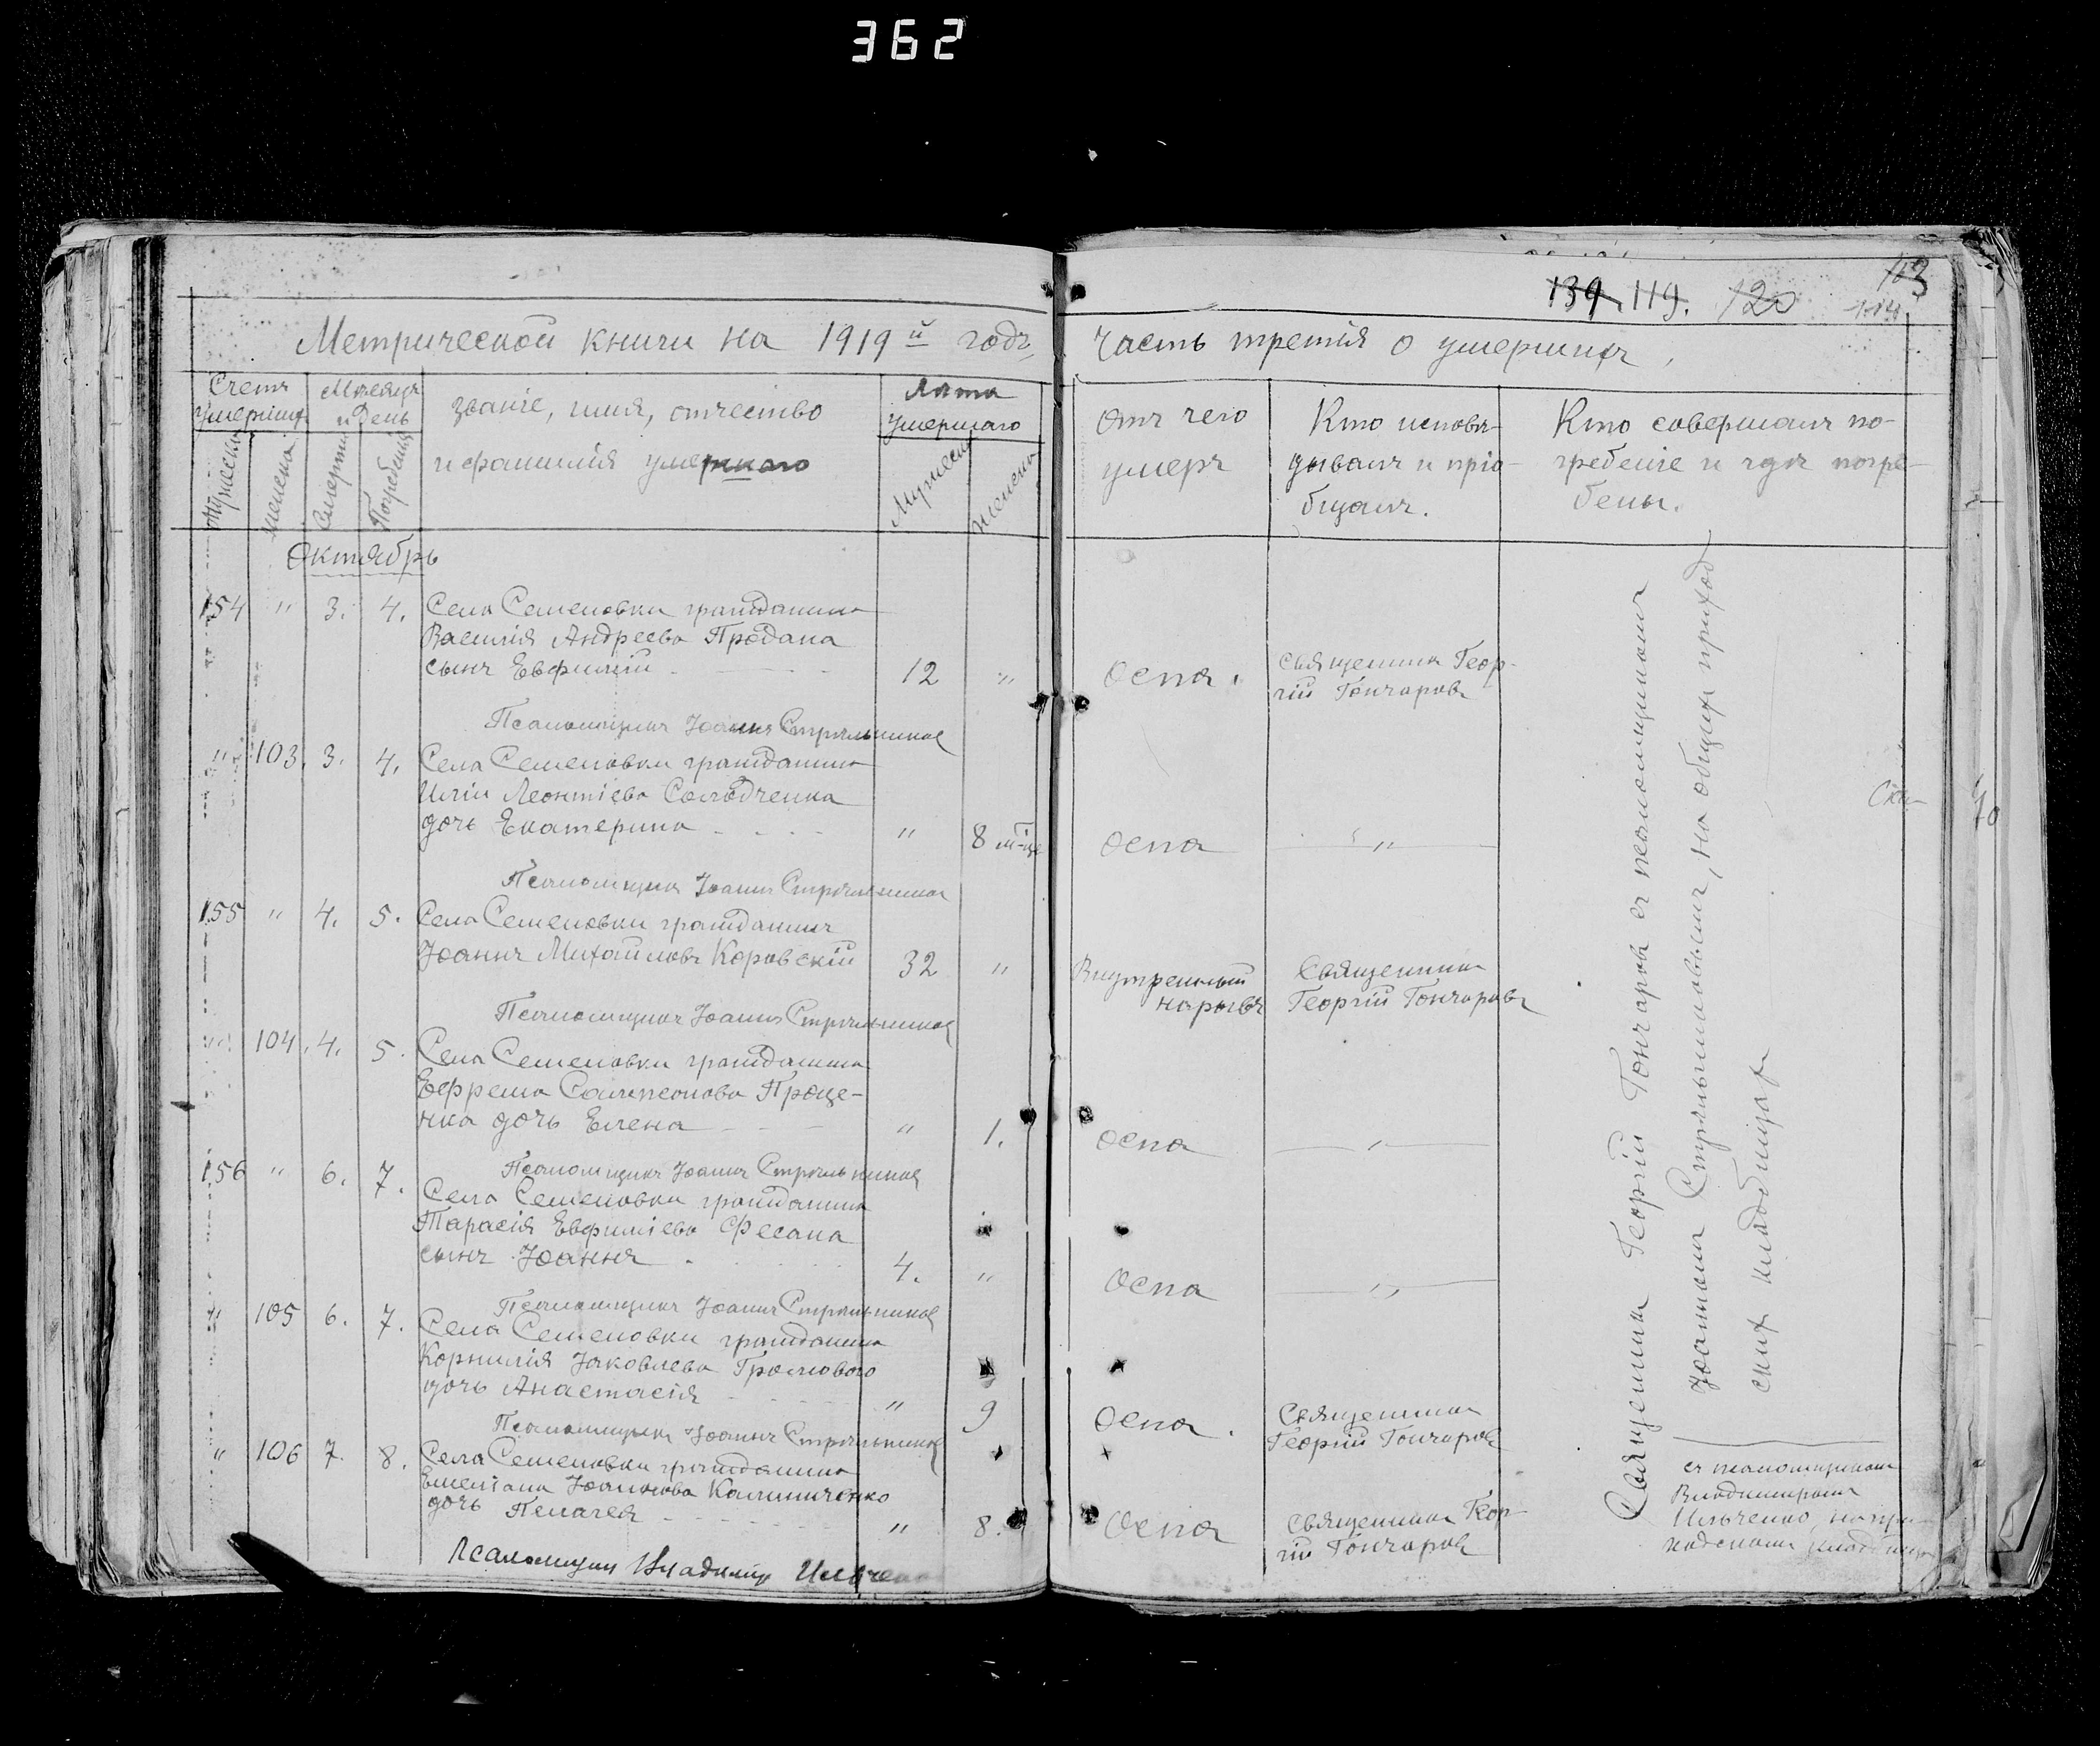 362
139. 119. 120 113
114
Метрической книги на 1919й годъ, часть третія о умершихъ,
Счетъ умершихъ
Мѣсяцъ и день
Званіе, имя, отчество
и фамилія умершаго
Лѣта умершаго
Отъ чего умеръ
Кто исповѣ-
дывалъ и пріо-
бщалъ.
Кто совершалъ по-
гребеніе и гдѣ погре-
бены.
Мужеска
Женска
Смерти
Погребенія
Мужеска
Женска
Октябрь
154 " 3. 4. Села Семеновки гражданина
Василія Андреева Продана
сынъ Евфимій 12 " Оспа. Священникъ Геор-
гій Гончаровъ
Псаломщикъ Іоаннъ Стрѣльниковъ
" 103. 3. 4. Села Семеновки гражданина
Иліи Леонтіева Солодченка
дочь Екатерина " 8 м-це Оспа "
Псаломщикъ Іоаннъ Стрѣльниковъ
155 " 4. 5. Села Семеновки гражданинъ
Іоаннъ Михайловъ Коровскій 32 " Внутренный Священникъ
нарывъ Георгій Гончаровъ
Псаломщикъ Іоаннъ Стрѣльниковъ
" 104. 4. 5. Села Семеновки гражданина
Ефрема Сампсонова Проце-
нка дочь Елена " 1. Оспа "
Псаломщикъ Іоаннъ Стрѣльниковъ
156 " 6. 7. Села Семеновки гражданина
Тарасія Евфиміева Фесана
сынъ Іоаннъ 4. " Оспа "
Псаломщикъ Іоаннъ Стрѣльниковъ
" 105 6. 7. Села Семеновки гражданина
Корнилія Іаковлева Громового
дочь Анастасія " 9 Оспа. Священникъ
Георгій Гончаровъ
Псаломщикъ Іоаннъ Стрѣльниковъ
" 106 7. 8. Села Семеновки гражданина
Емеліана Іоаннова Калиниченко
дочь Пелагея " 8. Оспа Священникъ Геор-
гій Гончаровъ
Псаломщикъ Владимір Ильченко
Священникъ Георгій Гончаровъ съ псаломщикомъ
Іоанномъ Стрѣльниковымъ, на общихъ приход
скихъ кладбищахъ
съ псаломщикомъ
Владимиромъ
Ильченко, на при-
ходскомъ кладбищѣ